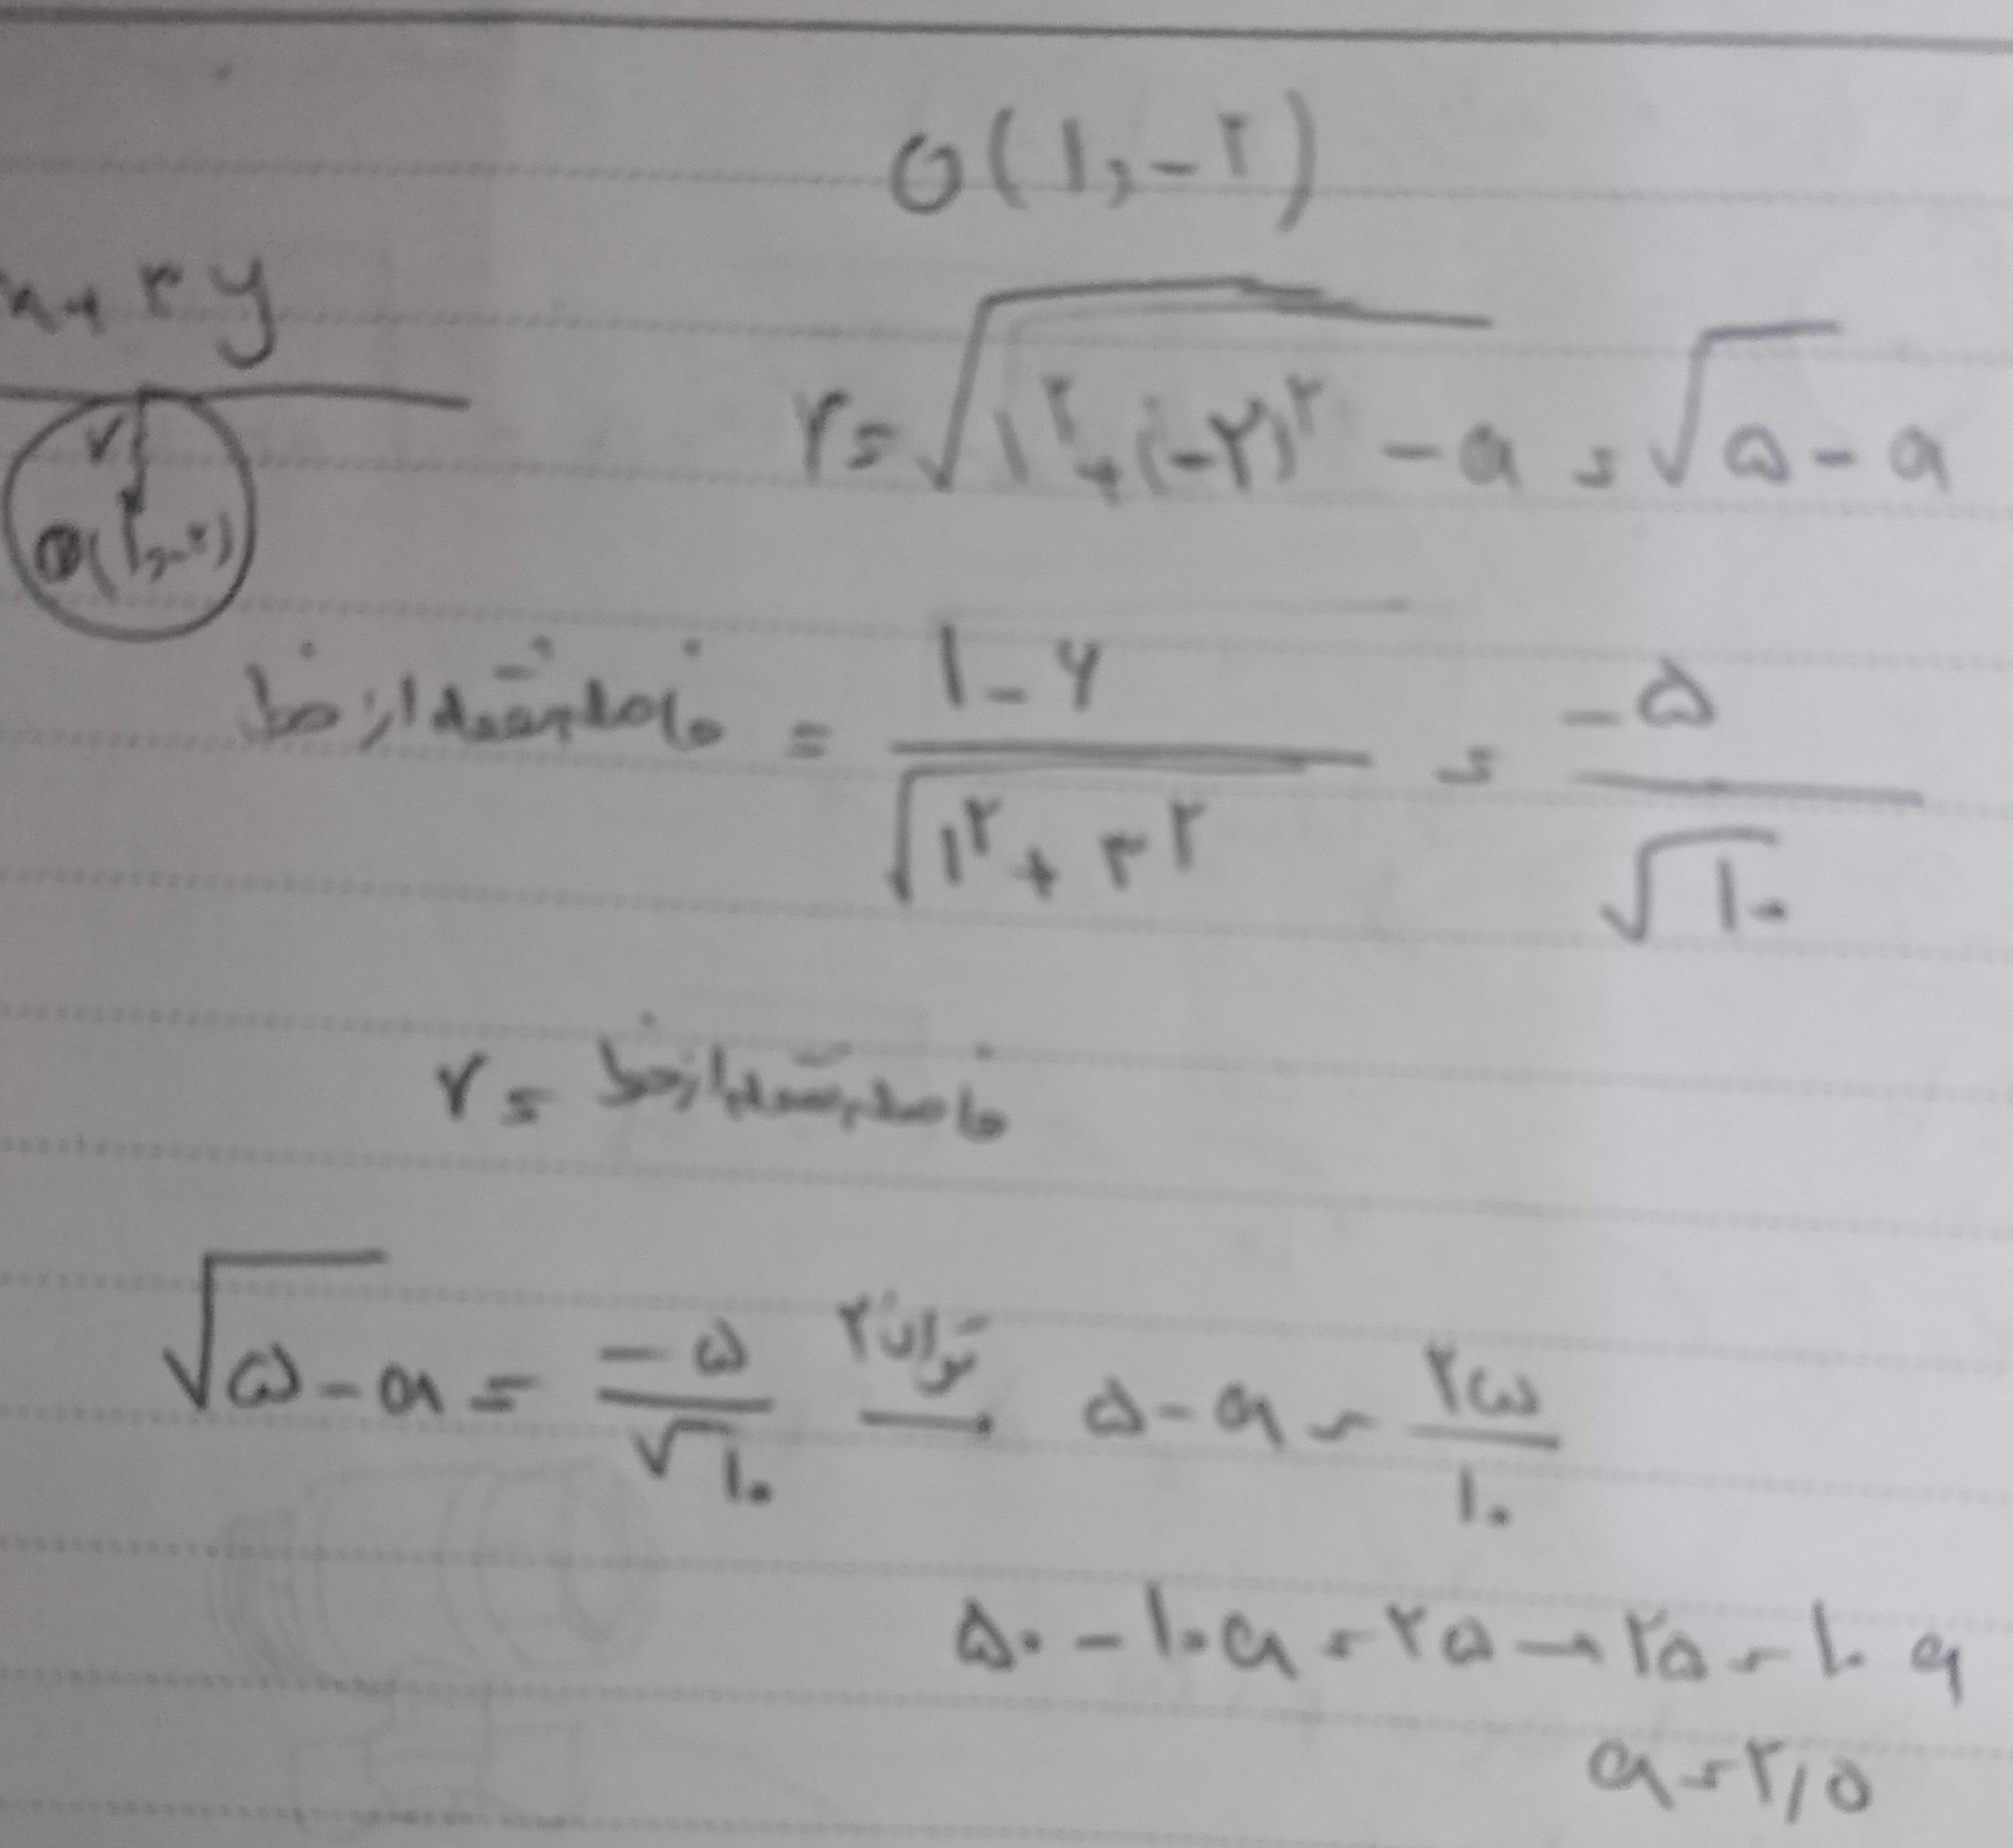 O(۱,-۲)
x+۳y
r=√۱^۲+(-۲)^۲-a=√۵-a
r
O(۱,-۲)
فاصله نقطه از خط = (۱-۶)/(√۱^۲+۳^۲) = (-۵)/(√۱۰)
r= فاصله نقطه از خط
√۵-a = (-۵)/(√۱۰) توان۲→ ۵-a=۲۵/۱۰
۵۰-۱۰a=۲۵→۲۵=۱۰a
a=۲,۵